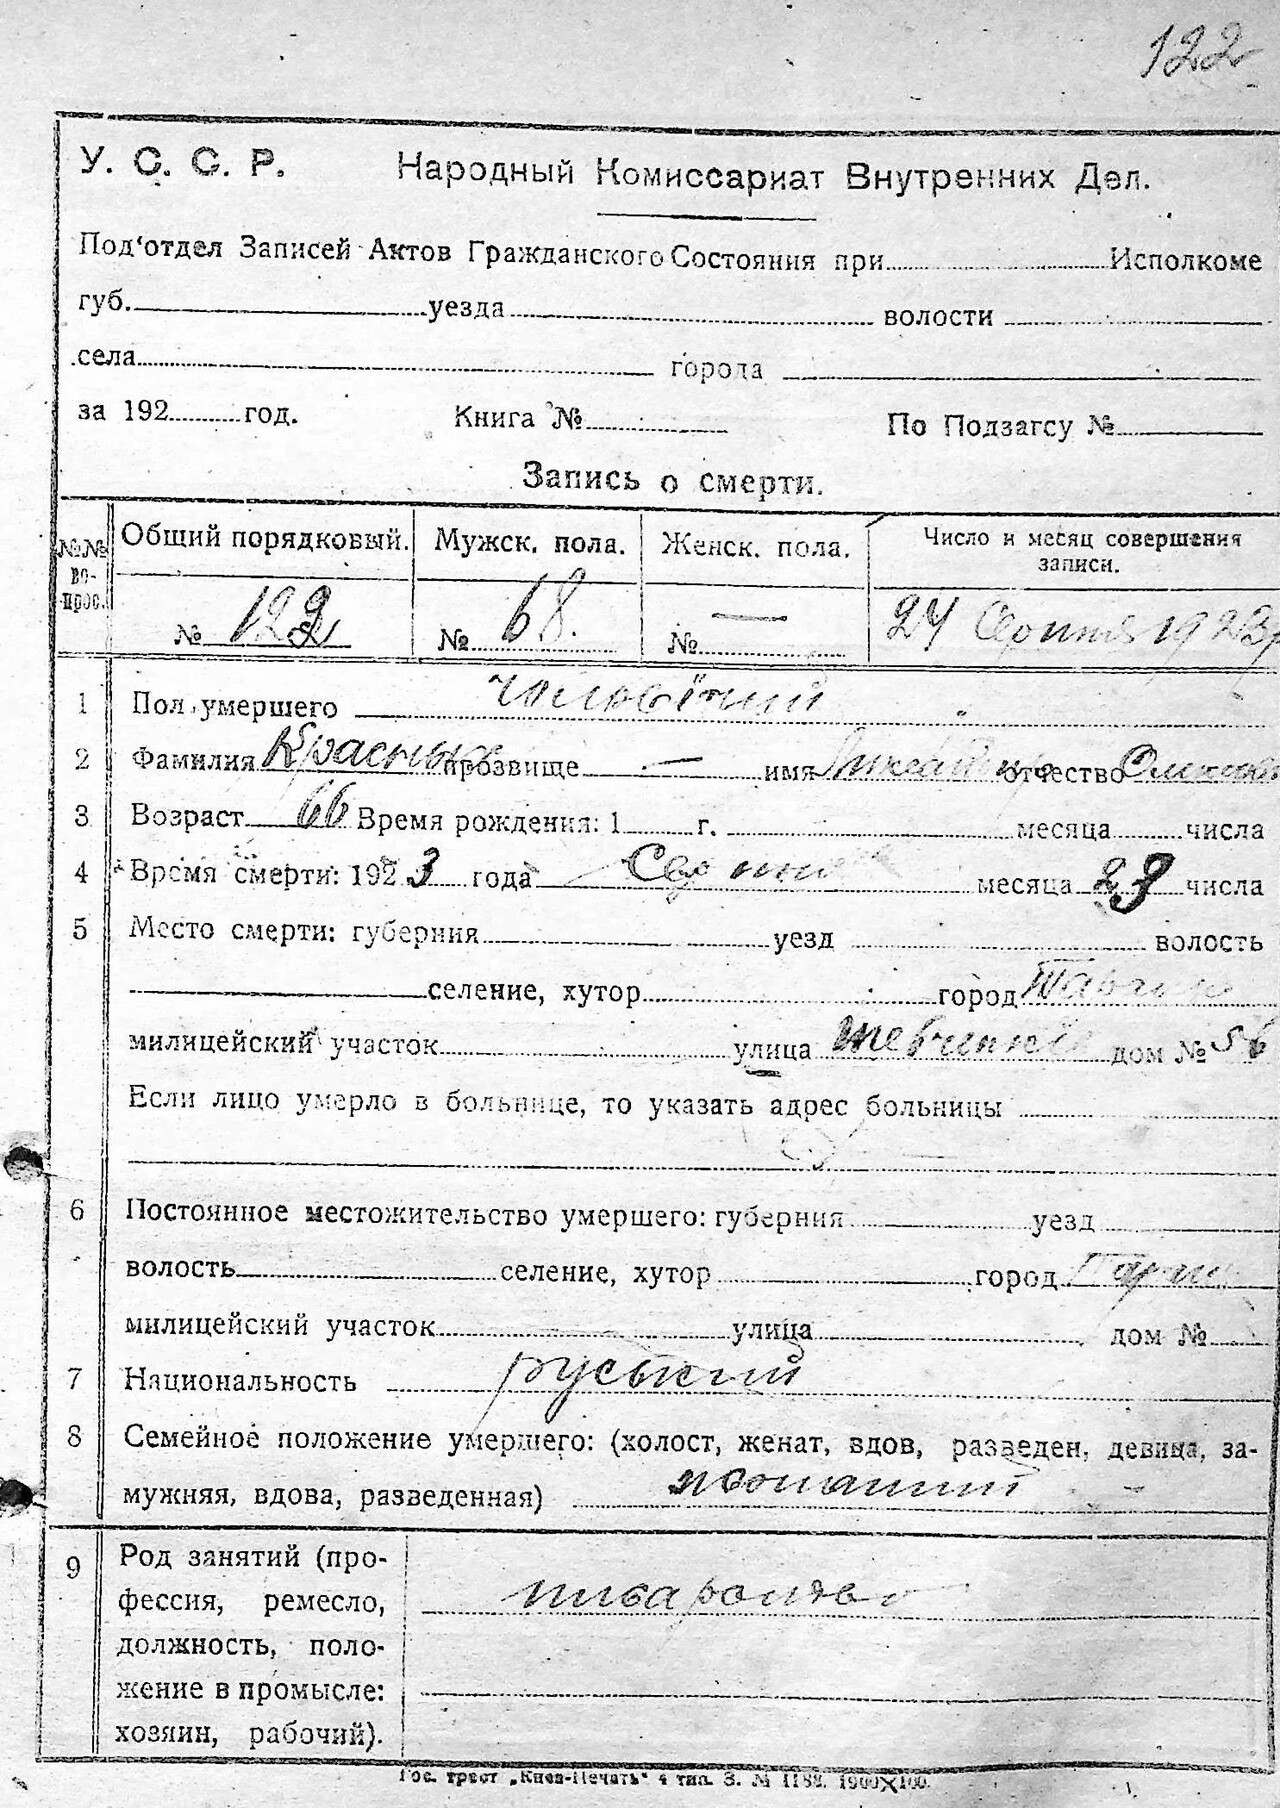 122
У. С. С. Р. Народный Комиссариат Внутренних Дел.
Под'отдел Записей Актов Гражданского Состояния при Исполкоме
губ. уезда волости
села города
за 192 год. Книга № По Подзагсу №
Запись о смерти.
№№ во- прос. Общий порядковый. Мужск. пола. Женск. пола. Число и месяц совершения записи.
№ 122 № 68. № — 24 1923
1 Пол умершего чоловічий
2 Фамилия прозвище — имя отчество
3 Возраст 66 Время рождения: 1 г. месяца числа
4 Время смерти: 1923 года месяца 23 числа
5 Место смерти: губерния уезд волость
селение, хутор город
милицейский участок улица дом № 56
Если лицо умерло в больнице, то указать адрес больницы
6 Постоянное местожительство умершего: губерния уезд
волость селение, хутор город
милицейский участок улица дом №
7 Национальность руський
8 Семейное положение умершего: (холост, женат, вдов, разведен, девица, за-
мужняя, вдова, разведенная) жонатий
9 Род занятий (про-
фессия, ремесло,
должность, поло-
жение в промысле:
хозяин, рабочий).
Гос. трест „Киев-Печать" 4 тип. З. № 1182. 1000×100.